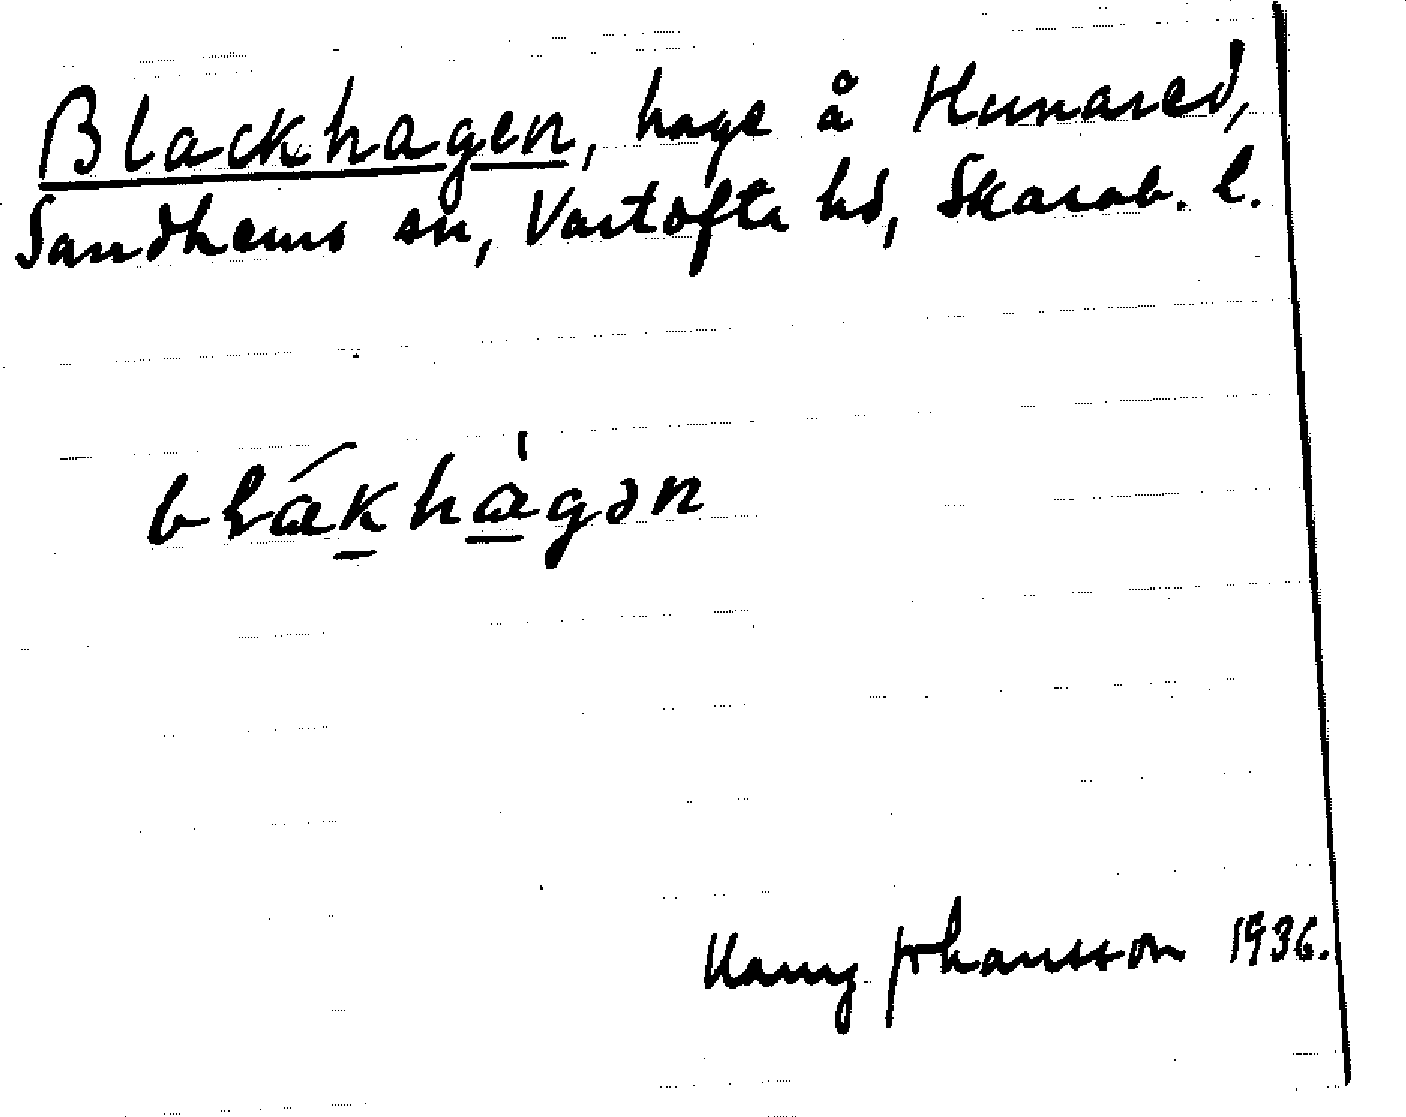 Blackhagen, hage å Hunared,
Sandhems sn, Vartofta hd, Skarab. l.
blákhàgən
Harry Johansson 1936.